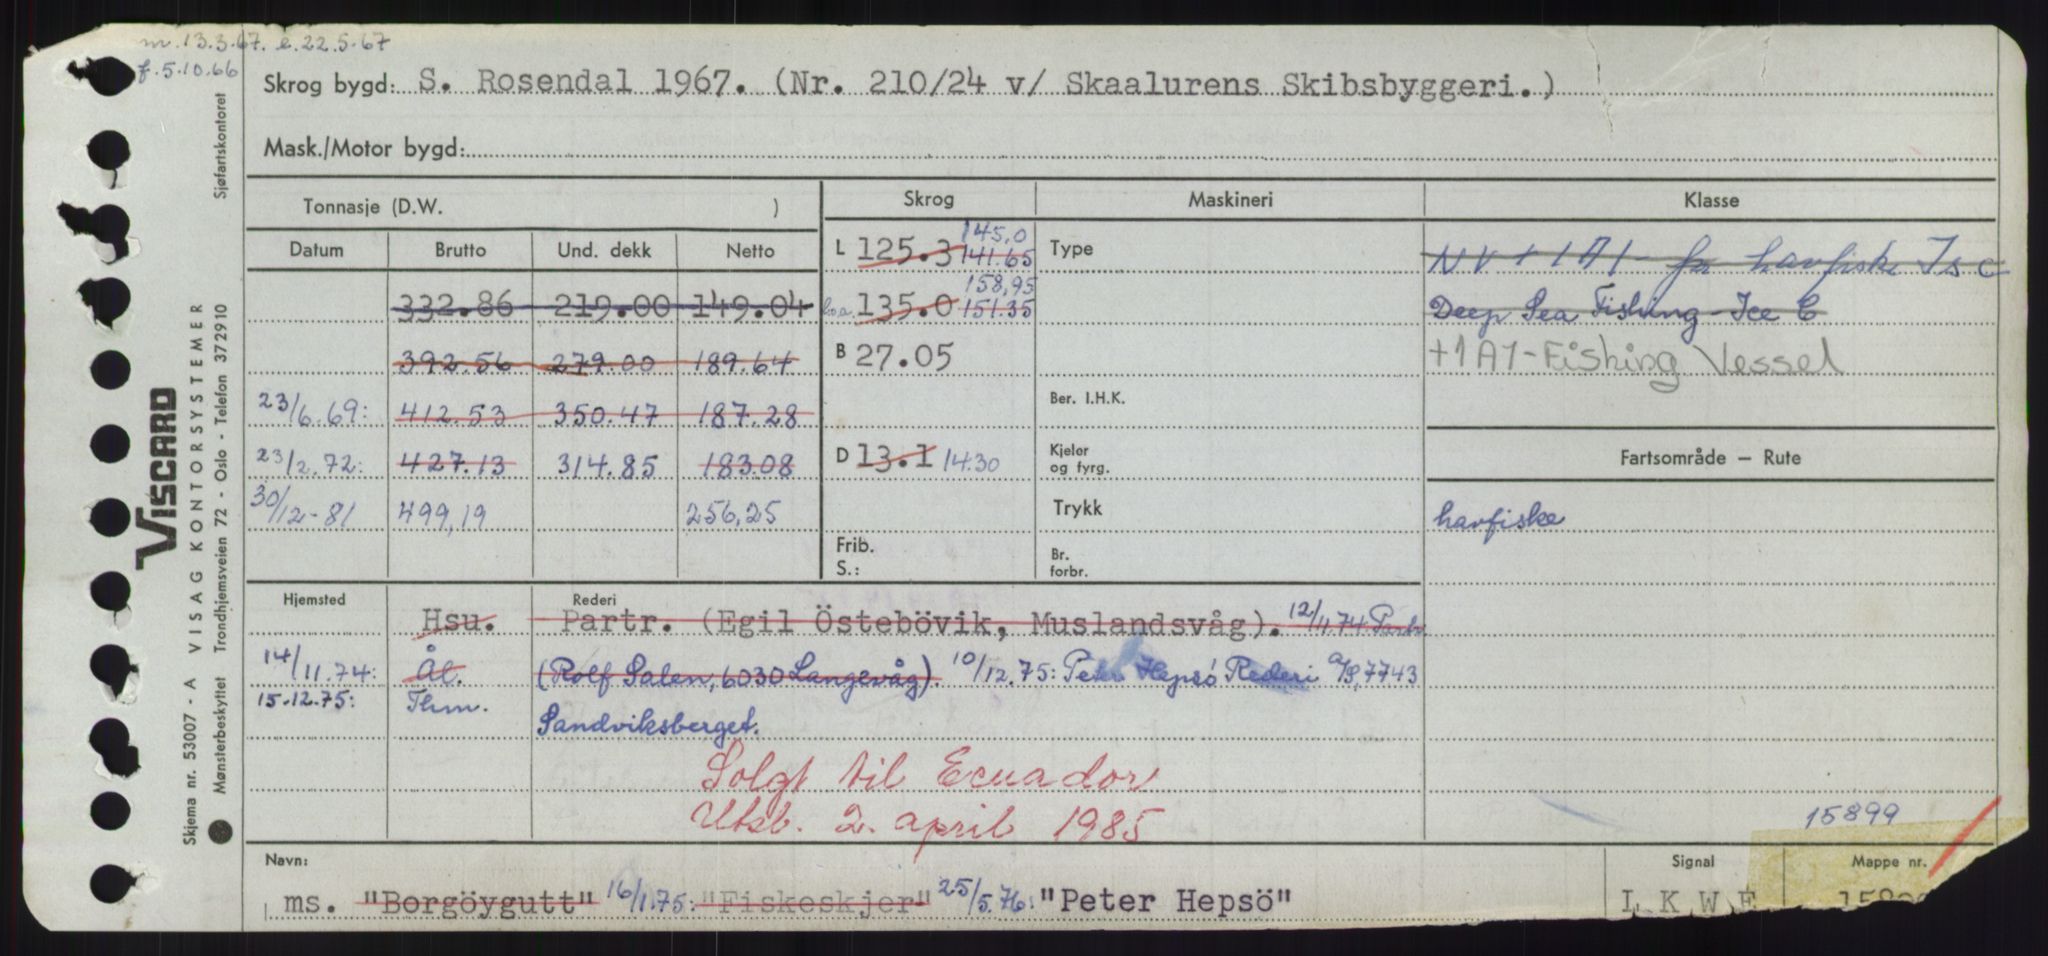 m. 13.3.67. e. 22.5.67
f. 5.10.66
Skrog bygd: S. Rosendal 1967. (Nr. 210/24 v/ Skaalurens Skibsbyggeri.)
Mask./Motor bygd:
Tonnasje (D.W. )
Skrog Maskineri Klasse
Datum Brutto Und. dekk Netto
L 125.3 141.65 145,0 Type NV + 1A1 - for havfiske Is C
332.86 219.00 149.04 l.o.a. 135.0 151.35 158,95 Deep Sea Fishing - Ice C
392.56 279.00 189.64 B 27.05 +1A1-Fishing Vessel
23/6.69: 412.53 350.47 187.28 Ber. I.H.K.
23/2.72: 427.13 314.85 183.08 D 13.1 14.30 Kjeler og fyrg. Fartsområde — Rute
30/12-81 499,19 256,25 Trykk havfiske
Frib.
S.: Br. forbr.
Hjemsted Rederi
Hsu. Partr. (Egil Östebövik, Muslandsvåg). 12/11.74. Partr
14/11.74: Ål. (Rolf Salen, 6030 Langevåg). 10/12.75: Peter Hepsö Rederi A/S, 7743
15.12.75: Thm. Sandviksberget.
Solgt til Ecuador
Utsb. 2. april 1985
15899
Navn: Signal Mappe nr.
ms. "Borgöygutt" 16/1.75: "Fiskeskjer" 25/5.76: "Peter Hepsö" L K W E
Sjøfartskontoret
VISCARD
VISAG KONTORSYSTEMER
Trondhjemsveien 72 - Oslo - Telefon 372910
Skjema nr. 53007 - A
Mønsterbeskyttet